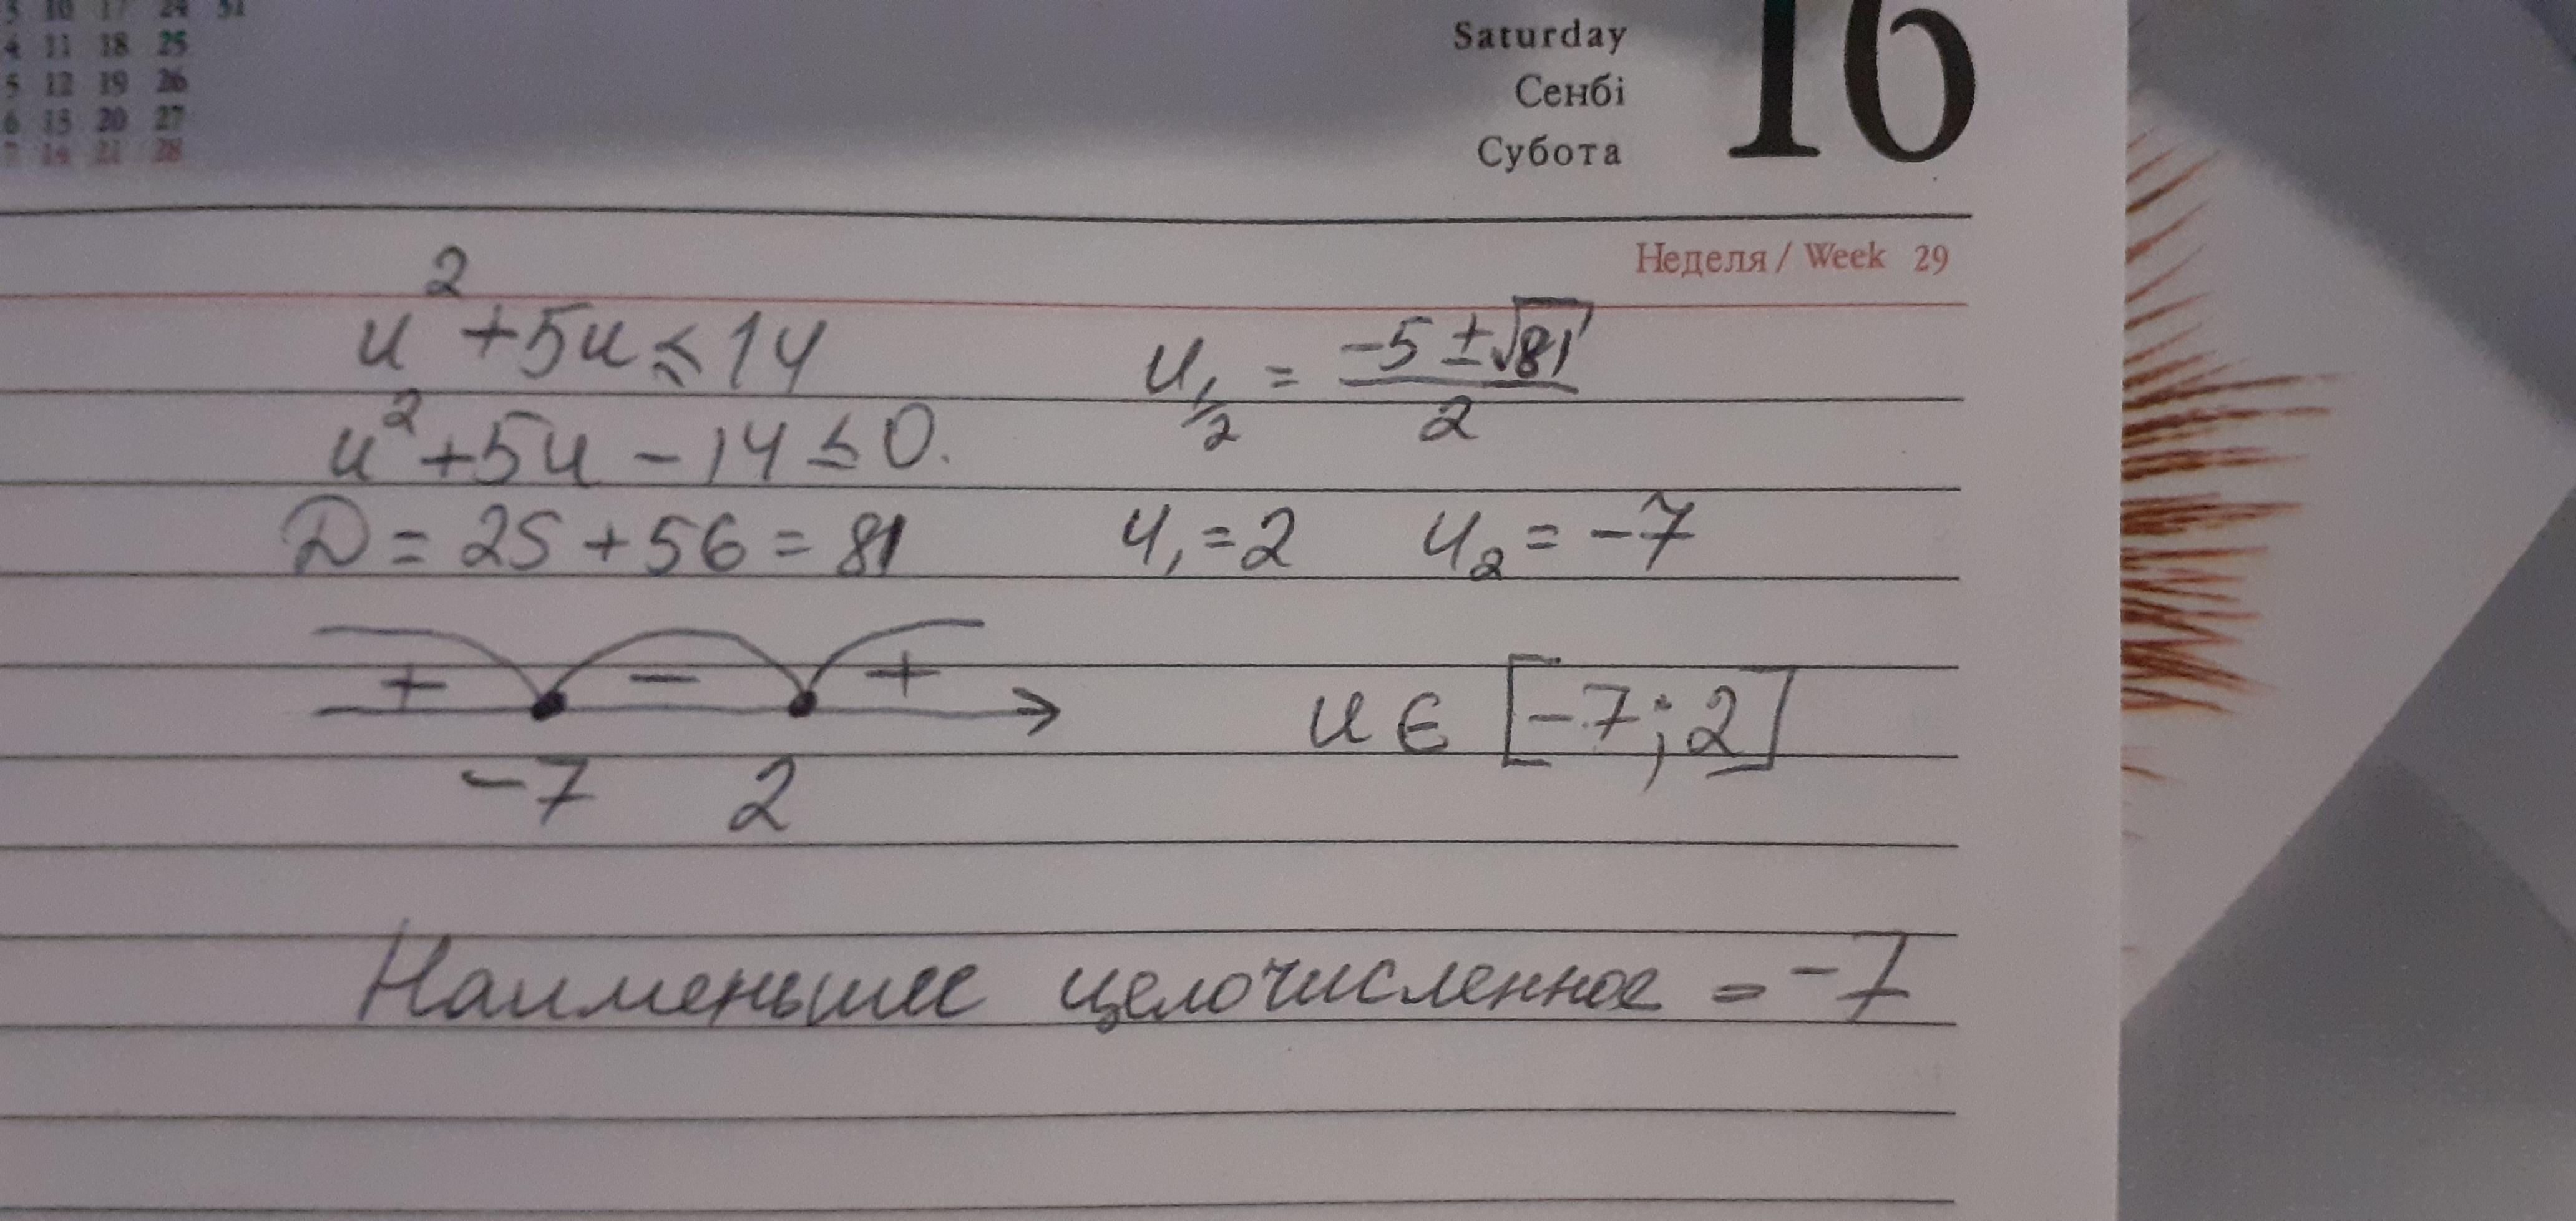 3 10 17 24 31
4 11 18 25
5 12 19 26
6 13 20 27
7 14 21 28
Saturday
Сенбі
Субота
16
Неделя / Week 29
u² + 5u ≤ 14
u₁/₂ = (-5 ± √81)/2
u² + 5u - 14 ≤ 0.
D = 25 + 56 = 81
u₁ = 2 u₂ = -7
+ - +
-7 2
u ∈ [-7; 2]
Наименьшее целочисленное = -7